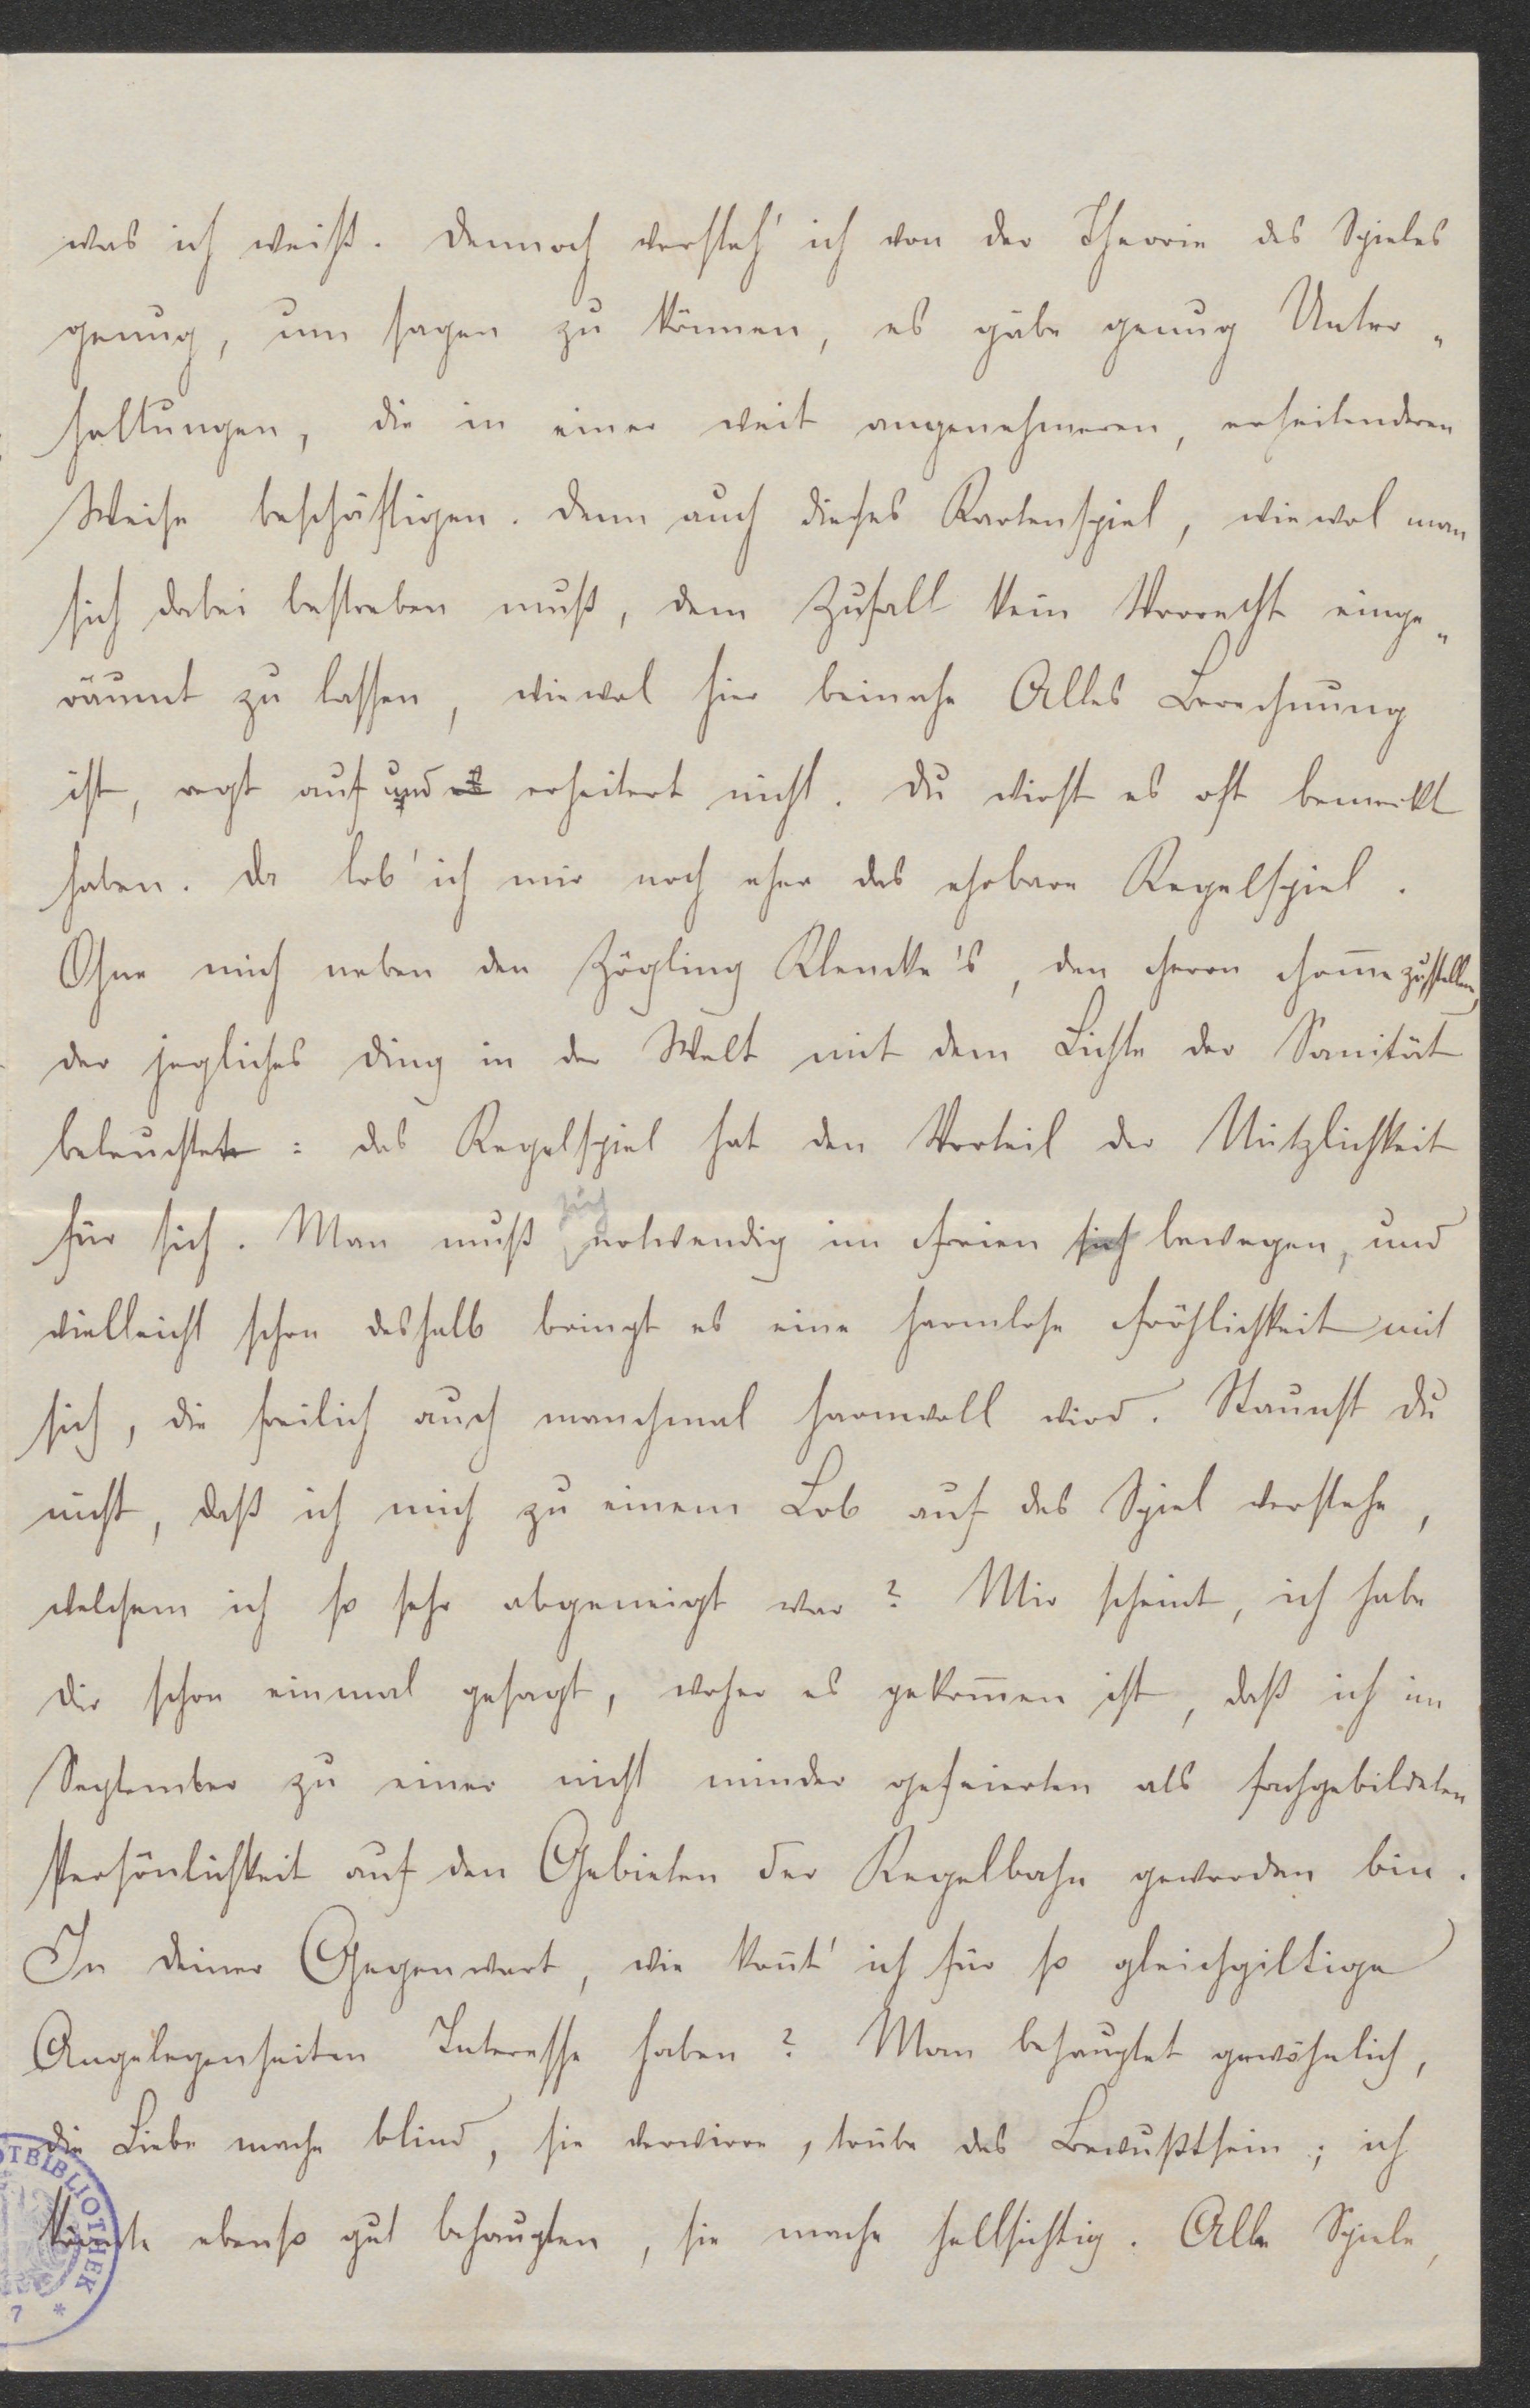 was ich weiß. Dennoch versteh' ich von der Theorie des Spieles
genug, um sagen zu können, es gäbe genug Unter„
haltungen, die in einer weit angenehmeren, erheiternderen
Weise beschäftigen. Denn auch dieses Kartenspiel, wiewol man
sich dabei bestreben muß, dem Zufall kein Vorrecht einge„
räumt zu lassen, wiewol hier beinahe Alles Berechnung
ist, regt auf und erheitert nicht. Du wirst es oft bemerkt
haben. Da lob' ich mir noch eher das ehrbare Kegelspiel.
Ohne mich neben den Zögling Klencke's, den Herrn Hom̅e zu stellen,
der jegliches Ding in der Welt mit dem Lichte der Sanität
beleuchtete: das Kegelspiel hat den Vorteil der Nützlichkeit
für sich. Man muß sich notwendig im Freien sich bewegen, und
vielleicht schon deshalb bringt es eine harmlose Fröhlichkeit mit
sich, die freilich auch manchmal harmvoll wird. Staunst Du
nicht, daß ich mich zu einem Lob auf das Spiel verstehe,
welchem ich so sehr abgeneigt war? Mir scheint, ich habe
Dir schon einmal gesagt, woher es gekom̅en ist, daß ich im
September zu einer nicht minder gefeierten als fachgebildeten
Persönlichkeit auf den Gebieten der Kegelbahn geworden bin.
In Deiner Gegenwart, wie kon̅t' ich für so gleichgiltige
Angelegenheiten Interesse haben? Man behauptet gewöhnlich,
die Liebe mache blind, sie verwirre, trübe das Bewußtsein; ich
könnte ebenso gut behaupten, sie mache hellsichtig. Alle Spiele,
TBIBLIOTHEK
7 *